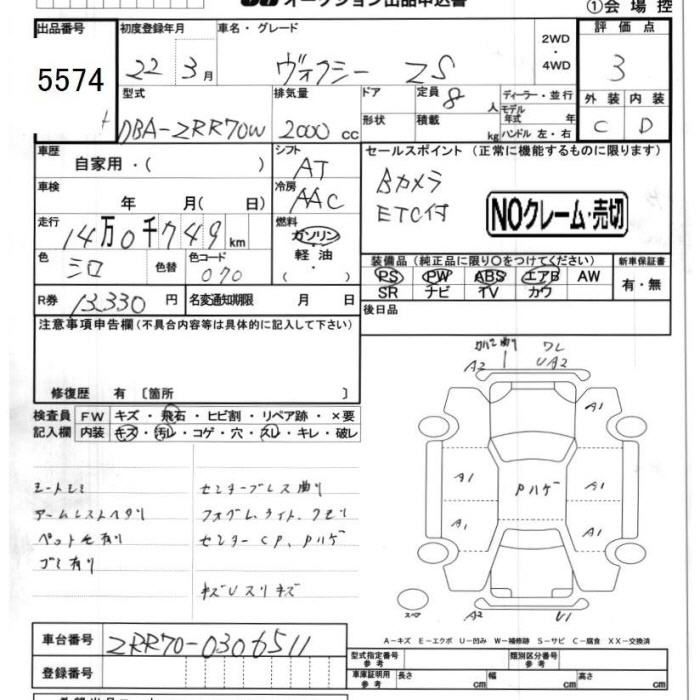 オークション出品申込書
①会場控
出品番号
5574
初度登録年月
22 3月
車名・グレード
ヴォクシー ZS
2WD・4WD
評価点
3
外装 内装
C D
型式
DBA-ZRR70W
排気量
2000 cc
ドア
形状
定員 8 人
積載 kg
ディーラー・並行
モデル年式 年
ハンドル 左・右
車歴
自家用・( )
シフト
AT
セールスポイント (正常に機能するものに限ります)
Bカメラ
ETC付
NOクレーム・売切
車検
年 月(日)
冷房
AAC
走行
14万0千749km
燃料
ガソリン
軽油・
( )
色
シロ
色替
色コード
070
装備品(純正品に限り○をつけてください)
PS PW ABS エアB AW
SR ナビ TV カワ
新車保証書
有・無
R券
13,330円
名変通知期限 月 日
後日品
注意事項申告欄(不具合内容等は具体的に記入して下さい)
修復歴 有〔箇所 〕
検査員記入欄
FW キズ・飛石・ヒビ割・リペア跡・×要
内装 キズ・汚レ・コゲ・穴・スレ・キレ・破レ
シートシミ
アームレストヘタリ
ペット毛有り
ゴミ有り
センターブレス曲り
フォグ、ライト、クモリ
センターCP、Pハゲ
キズUスリキズ
カバー曲り
ワレ
A2
UA2
A1
A1
A1
A1
A1
Pハゲ
スペア
A2
U1
A-キズ E-エクボ U-凹み W-補修跡 S-サビ C-腐食 XX-交換済
車台番号
ZRR70-0306511
登録番号
型式指定番号 参考
類別区分番号 参考
車庫証明用 参考
長さ cm
幅 cm
高さ cm